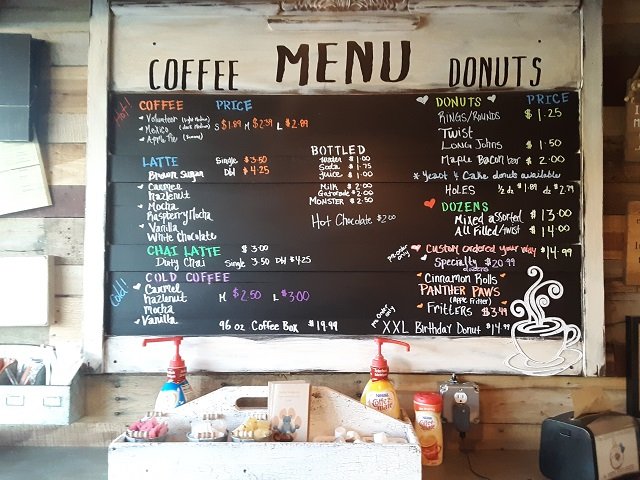 COFFEE MENU DONUTS
Hot!
COFFEE PRICE
Volunteer (Light Medium)
Mexico (Dark Medium) S $1.89 M $2.39 L $2.89
Apple Pie
LATTE Single $3.50
Brown Sugar Dbl $4.25
Caramel
Hazlenut
Mocha
Raspberry Mocha
Vanilla
White Chocolate
CHAI LATTE $3.00
Dirty Chai Single 3.50 Dbl $4.25
Cold!
COLD COFFEE
Caramel
Hazlenut M $2.50 L $3.00
Mocha
Vanilla
96 oz Coffee Box $19.99
BOTTLED
Water $1.00
Soda $1.75
Juice $1.00
Milk $2.00
Gatorade $2.00
MONSTER $2.50
Hot Chocolate $2.00
DONUTS PRICE
RINGS/ROUNDS $1.25
Twist
Long Johns $1.50
Maple Bacon bar $2.00
* Yeast & Cake donuts available
HOLES ½ dz $1.89 dz $2.79
DOZENS
Mixed assorted $13.00
All Filled/twist $14.00
Pre Order only
Custom ordered your way $14.99
Specialty $20.99
dozens
Cinnamon Rolls
PANTHER PAWS
(Apple Fritter)
Fritters $3.49
Pre Order only
XXL Birthday Donut $14.99
Coffee mate